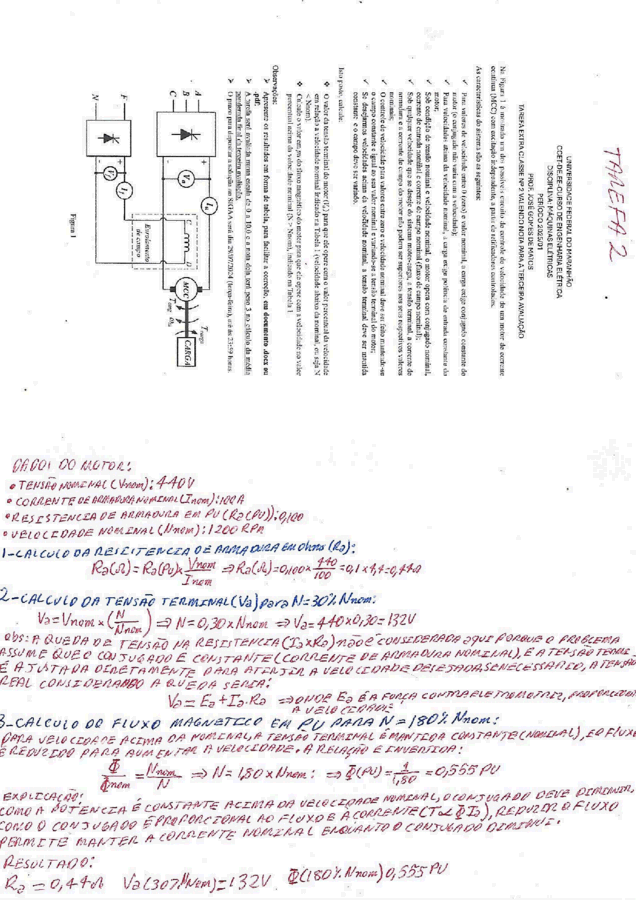 TAREFA 2
UNIVERSIDADE FEDERAL DO MARANHÃO
CCET-DEE-CURSO DE ENGENHARIA ELÉTRICA
DISCIPLINA: MÁQUINAS ELÉTRICAS
PROF. JOSÉ GOMES DE MATOS
TAREFA EXTRA CLASSE Nº 2 VALENDO NOTA PARA A TERCEIRA AVALIAÇÃO
Na Figura 1 é mostrado um dos possíveis circuitos de controle de velocidade de um motor de corrente
contínua (MCC) com excitação independente,
As características do sistema são as seguintes:
✓ Para valores de velocidade entre 0 (zero) e valor nominal, a carga exige conjugado constante do
motor (o conjugado não varia com a velocidade);
✓ Para velocidade acima da velocidade nominal, a carga exige potência de entrada constante do
motor;
✓ Sob condição de tensão nominal e velocidade nominal, o motor opera com conjugado nominal,
corrente de armadura nominal e corrente de campo nominal (fluxo de campo nominal);
✓ Sob qualquer velocidade que se deseje do sistema motor-carga, a tensão terminal, a corrente de
armadura e a corrente de campo do motor não podem ser superiores aos seus respectivos valores
nominais;
✓ O controle de velocidade para valores entre zero e velocidade nominal deve ser feito mantendo-se
o campo constante e igual ao seu valor nominal e variando-se a tensão terminal do motor;
✓ Se desejarmos velocidades acima da velocidade nominal, a tensão terminal deve ser mantida
constante e o campo deve ser variado.
Isto posto, calcule:
❖ O valor da tensão terminal do motor (Va) para que ele opere com o valor percentual da velocidade
em relação a velocidade nominal indicado na Tabela 1 (velocidade abaixo da nominal, ou seja N
< Nnom);
❖ Calcule o valor em pu do fluxo magnético do motor para que ele opere com a velocidade no valor
percentual acima da velocidade nominal (N > Nnom), indicado na Tabela 1
Observações:
➢ Apresente os resultados em forma de tabela, para facilitar a correção, em documento .docx ou
.pdf;
➢ A tarefa será avaliada numa escala de 0 a 10,0 e a nota dela terá peso 3 no cálculo da média
➢ O prazo para depositar a solução no SIGAA será dia
A
B
C
Va
Ia
F
N
Vf
If
Enrolamento
de campo
MCC
CARGA
Figura 1
DADOS DO MOTOR:
• TENSÃO NOMINAL (Vnom): 440V
• CORRENTE DE ARMADURA NOMINAL (Inom): 100A
• RESISTENCIA DE ARMADURA EM PU (Ra(PU)): 0,100
• VELOCIDADE NOMINAL (Nnom): 1200 RPM
1-CALCULO DA RESISTENCIA DE ARMADURA em Ohms (Ra):
Ra(Ω) = Ra(PU) x Vnom/Inom ⇒ Ra(Ω) = 0,100 x 440/100 = 0,1 x 4,4 = 0,44Ω
2-CALCULO DA TENSÃO TERMINAL (Va) para N=30% Nnom:
Va = Vnom x (N/Nnom) ⇒ N = 0,30 x Nnom ⇒ Va = 440 x 0,30 = 132V
obs: A QUEDA DE TENSÃO NA RESISTENCIA (Ia x Ra) não é CONSIDERADA aqui PORQUE O PROBLEMA
ASSUME QUE O CONJUGADO É CONSTANTE (CORRENTE DE ARMADURA NOMINAL), E A TENSÃO
É AJUSTADA DIRETAMENTE PARA ATINJIR A VELOCIDADE DESEJADA, SE NECESSÁRIO, A TENSÃO
REAL CONSIDERANDO A QUEDA SERIA:
Va = Ea + Ia . Ra ⇒ ONDE Ea É A FORÇA CONTRAELETROMOTRIZ,
A VELOCIDADE
3-CALCULO DO FLUXO MAGNETICO EM PU PARA N = 180% Nnom:
PARA VELOCIDADE ACIMA DA NOMINAL, A TENSÃO TERMINAL É MANTIDA CONSTANTE (NOMINAL), E O FLUXO
É REDUZIDO PARA AUMENTAR A VELOCIDADE. A RELAÇÃO É INVERTIDA:
Φ/Φnom = Nnom/N ⇒ N = 1,80 x Nnom: ⇒ Φ(PU) = 1/1,80 = 0,555 PU
EXPLICAÇÃO:
COMO A POTENCIA É CONSTANTE ACIMA DA VELOCIDADE NOMINAL, O CONJUGADO DEVE DIMINUIR,
COMO O CONJUGADO É PROPORCIONAL AO FLUXO E A CORRENTE (T α Φ Ia), REDUZIR O FLUXO
PERMITE MANTER A CORRENTE NOMINAL ENQUANTO O CONJUGADO DIMINUI.
RESULTADO:
Ra = 0,44Ω Va(30% Nnom) = 132V Φ(180% Nnom) 0,555 PU